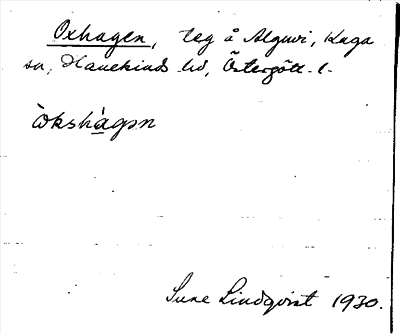 Oxhagen, teg å Alguvi, Kaga
sn, Hanekinds hd, Östergötl. l.
òkshàgən
Sune Lindqvist 1930.